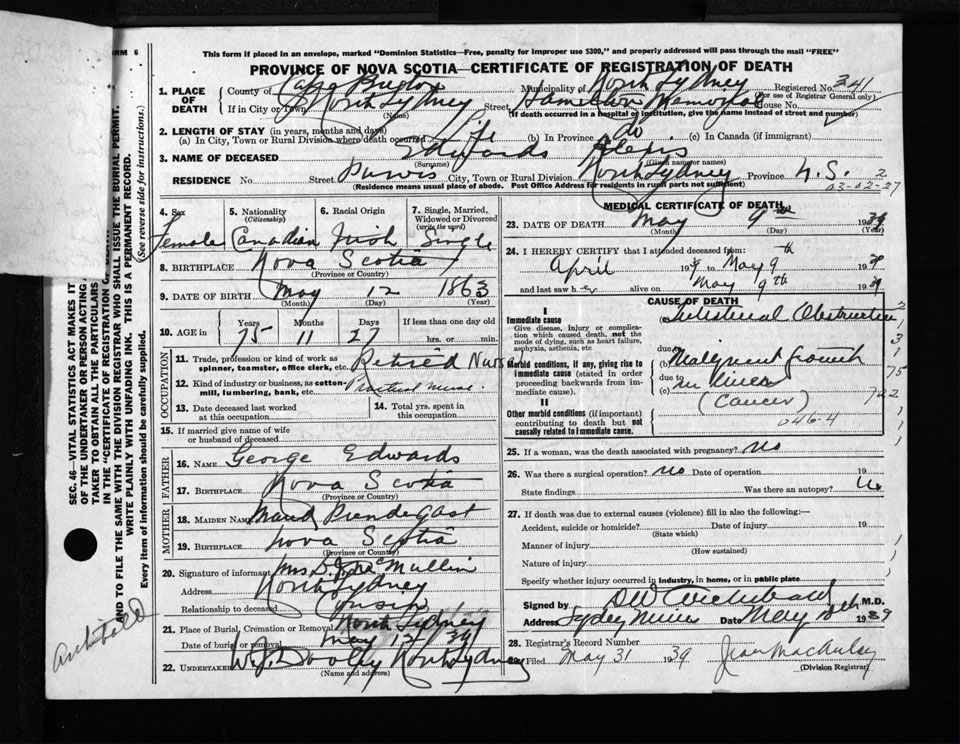 FORM 6
This form if placed in an envelope, marked "Dominion Statistics—Free, penalty for improper use $300," and properly addressed will pass through the mail "FREE"
PROVINCE OF NOVA SCOTIA—CERTIFICATE OF REGISTRATION OF DEATH
1. PLACE OF DEATH
County of Cape Breton Municipality of North Sydney Registered No. 341
(For use of Registrar General only)
If in City or Town North Sydney Street Hamilton Memorial House No.
(Name) (If death occurred in a hospital or institution, give the name instead of street and number)
2. LENGTH OF STAY (in years, months and days)
(a) In City, Town or Rural Division where death occurred Life (b) In Province do (c) In Canada (if immigrant)
3. NAME OF DECEASED Edwards Alexis
(Surname) (Given name or names)
RESIDENCE No. Street Purvis City, Town or Rural Division North Sydney Province N.S. 2
(Residence means usual place of abode. Post Office Address for residents in rural parts not sufficient) 03-02-27
4. Sex Female
5. Nationality (Citizenship) Canadian
6. Racial Origin Irish
7. Single, Married, Widowed or Divorced (write the word) Single
8. BIRTHPLACE Nova Scotia
(Province or Country)
9. DATE OF BIRTH May 12 1863
(Month) (Day) (Year)
10. AGE in Years Months Days If less than one day old
75 11 27 hrs. or min.
OCCUPATION
11. Trade, profession or kind of work as spinner, teamster, office clerk, etc. Retired Nurse
12. Kind of industry or business, as cotton-mill, lumbering, bank, etc. Practical nurse
13. Date deceased last worked at this occupation
14. Total yrs. spent in this occupation
15. If married give name of wife or husband of deceased
FATHER
16. NAME George Edwards
17. BIRTHPLACE Nova Scotia
(Province or Country)
MOTHER
18. MAIDEN NAME Maud Prendegast
19. BIRTHPLACE Nova Scotia
(Province or Country)
20. Signature of informant Mrs McMullin
Address North Sydney
Relationship to deceased Cousin
21. Place of Burial, Cremation or Removal North Sydney
Date of burial or removal May 12/39
22. UNDERTAKER W. J. Dooley North Sydney
(Name and address)
MEDICAL CERTIFICATE OF DEATH
23. DATE OF DEATH May 9th 1939
(Month) (Day) (Year)
24. I HEREBY CERTIFY that I attended deceased from:
April 1939 to May 9th 1939
and last saw her alive on May 9th 1939
CAUSE OF DEATH
I
Immediate cause
Give disease, injury or complication which caused death, not the mode of dying, such as heart failure, asphyxia, asthenia, etc
Intestinal Obstruction
Morbid conditions, if any, giving rise to immediate cause (stated in order proceeding backwards from immediate cause).
due to
(b) Malignent growth
due to
(c) in liver
(Cancer)
II
Other morbid conditions (if important) contributing to death but not causally related to immediate cause.
046-4
25. If a woman, was the death associated with pregnancy? no
26. Was there a surgical operation? no Date of operation 19
State findings Was there an autopsy? No
27. If death was due to external causes (violence) fill in also the following:—
Accident, suicide or homicide? Date of injury 19
(State which)
Manner of injury
(How sustained)
Nature of injury
Specify whether injury occurred in industry, in home, or in public place
Signed by DW Archibald M.D.
Address Sydney Mines Date May 1939
28. Registrar's Record Number
29. Filed May 31 1939 Jean MacAulay
(Division Registrar)
SEC. 46—VITAL STATISTICS ACT MAKES IT
OF THE UNDERTAKER OR PERSON ACTING
TAKER TO OBTAIN ALL THE PARTICULARS
IN THE "CERTIFICATE OF REGISTRATION
AND TO FILE THE SAME WITH THE DIVISION REGISTRAR WHO SHALL ISSUE THE BURIAL PERMIT.
WRITE PLAINLY WITH UNFADING INK. THIS IS A PERMANENT RECORD.
Every item of information should be carefully supplied. (See reverse side for instructions.)